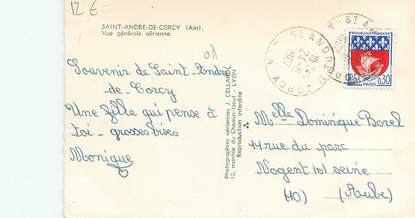 12 €
SAINT-ANDRE-DE-CORCY (Ain).
Vue générale aérienne.
01
Souvenir de Saint-André
de Corcy
Une fille qui pense à
toi - grosses bises
Monique
Photographies aériennes J. CELLARD
10, montée du Chemin-Neuf - LYON
Reproduction interdite
ST ANDRE
REPUBLIQUE FRANÇAISE
0,30
PARIS
Melle Dominique Borel
rue du parc
Nogent s/ seine
(Aube)